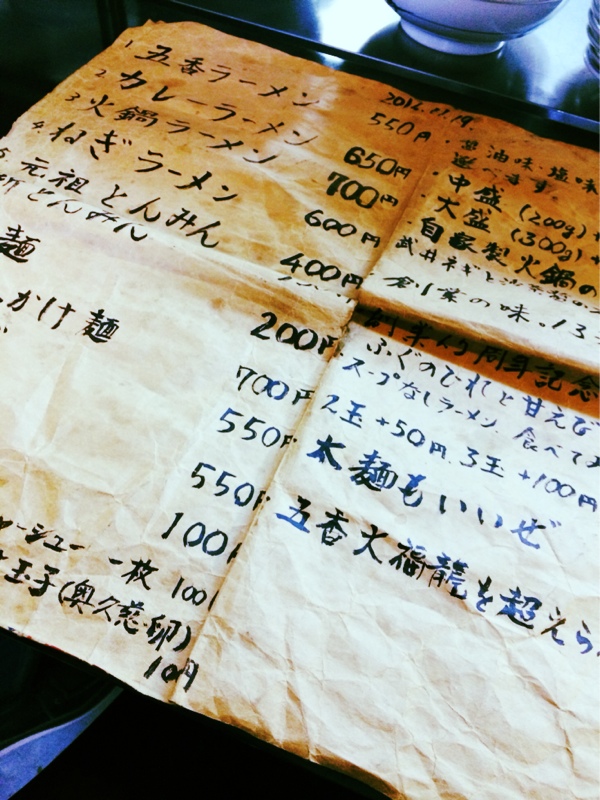 2016.11.19.
1 五香ラーメン 550円
2 カレーラーメン 650円
3 火鍋ラーメン 700円
4. ねぎラーメン 600円
5 元祖とんみん 400円
とんみん
麺 200円
700円
かけ麺 550円
550円
100
チャーシュー 一枚 100
玉子(奥久慈卵)
10円
・醤油味、塩味
選べます。
・中盛 (200g)+
・大盛 (300g)+
・自家製火鍋の
武井ネギと
・創業の味。13
創業 周年記念
ふぐのひれと甘えび
スープなしラーメン、食べて
2玉+50円、3玉+100円
太麺もいいぜ
五香火福龍を超えら